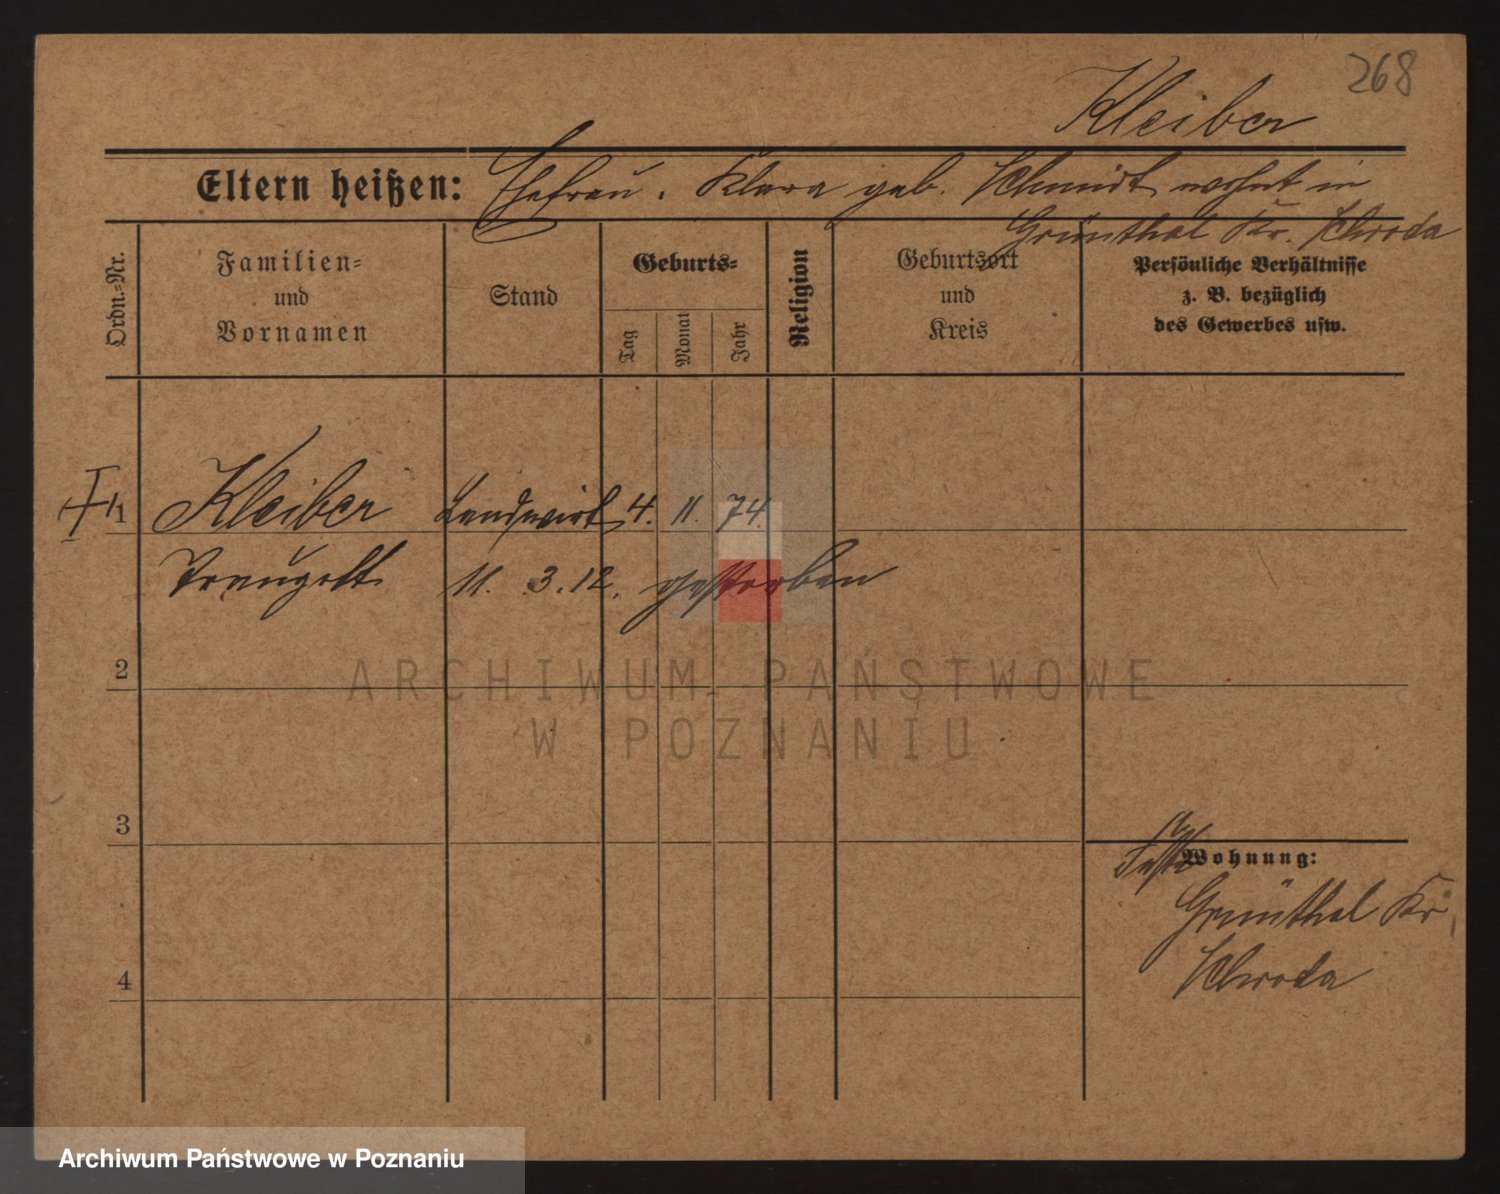 268
Kleiber
Eltern heißen: Ehefrau. Klara geb. Schmidt wohnt in
Grünthal Kr. Schroda
Ordn.-Nr.
Familien-
und
Vornamen
Stand
Geburts-
Tag
Monat
Jahr
Religion
Geburtsort
und
Kreis
Persönliche Verhältnisse
z. B. bezüglich
des Gewerbes usw.
1 Kleiber Landwirt 4. 11. 74.
Traugott 11. 3. 12. gestorben
2
ARCHIWUM PAŃSTWOWE
W POZNANIU
3
Wohnung:
Grünthal Kr
Schroda
4
Archiwum Państwowe w Poznaniu